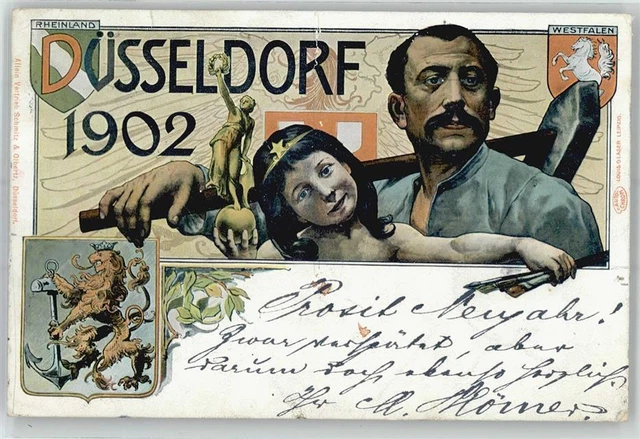 RHEINLAND
WESTFALEN
DÜSSELDORF
1902
Prosit Neujahr!
Zwar verspätet, aber
darum doch ebenso herzlich
Ihr A. Hörner.
Allein Vertrieb Schmitz & Düsseldorf.
LOUIS GLASER LEIPZIG.